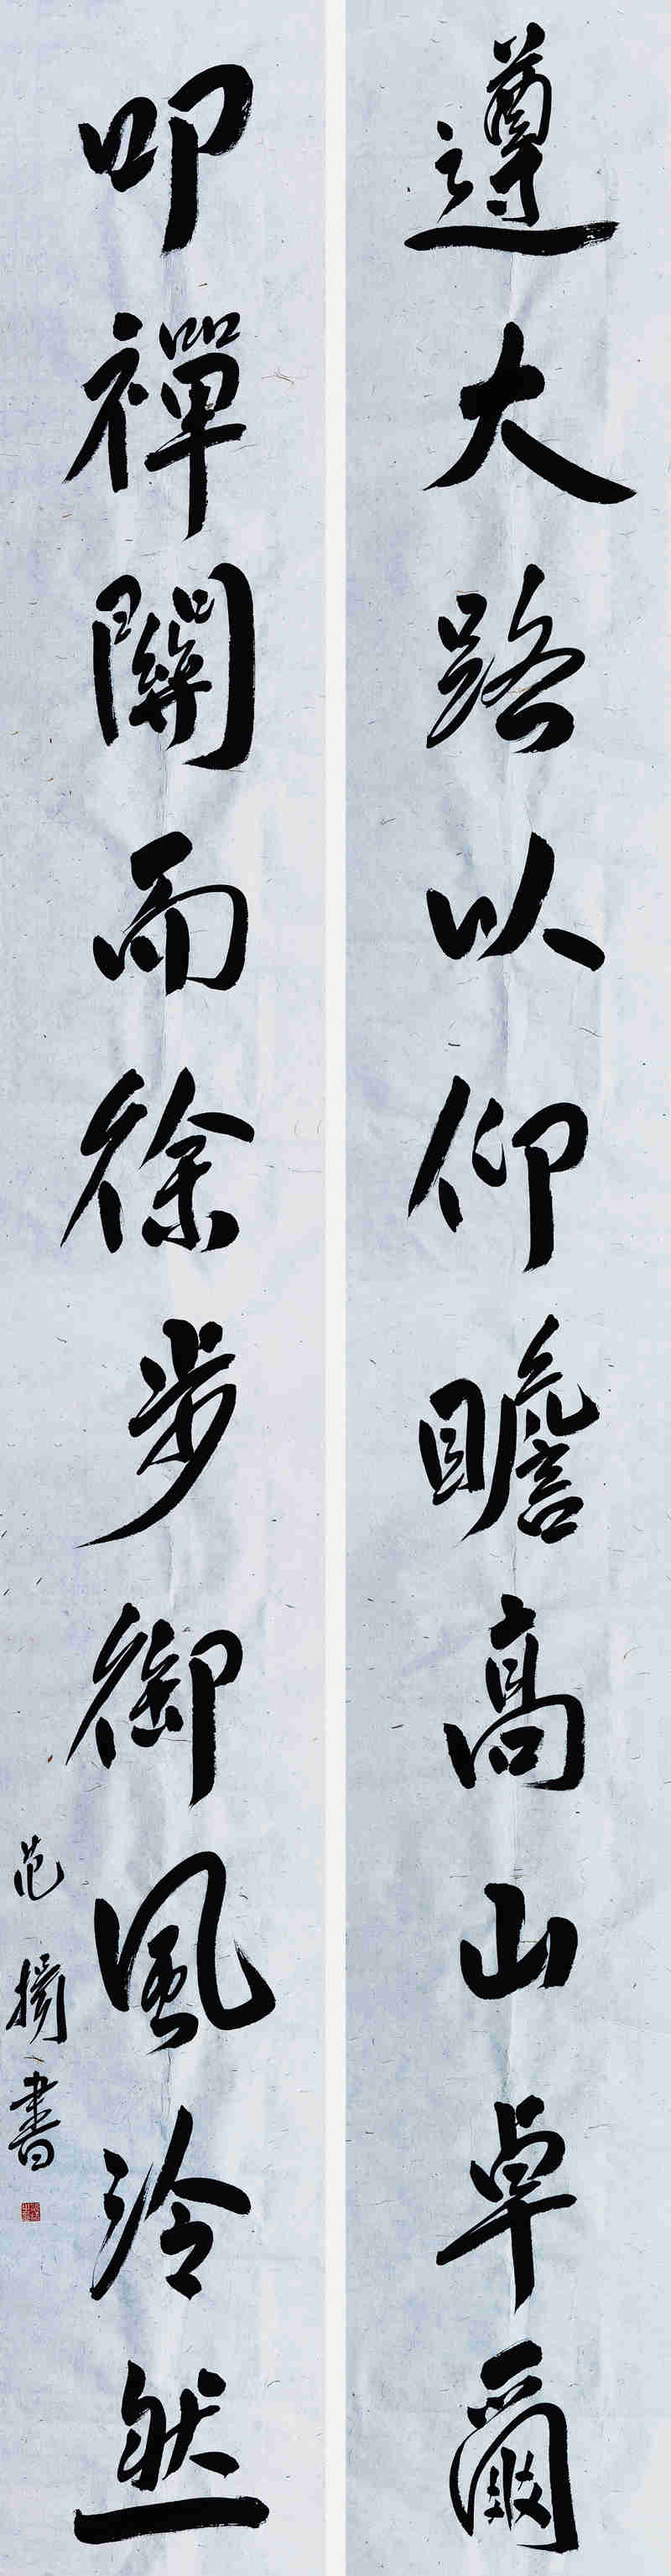 遵大路以仰瞻高山卓爾
叩禪關而徐步御風泠然
范 書